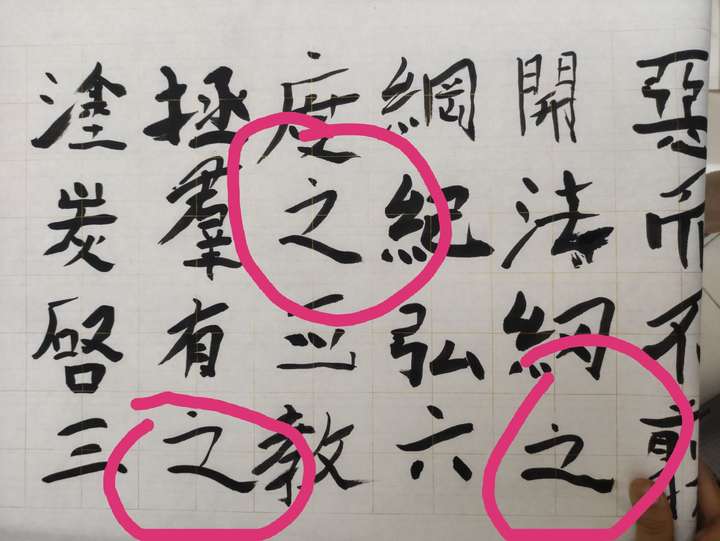 惡而不翦
開法網之
綱紀弘六
度之正教
拯羣有之
塗炭啓三